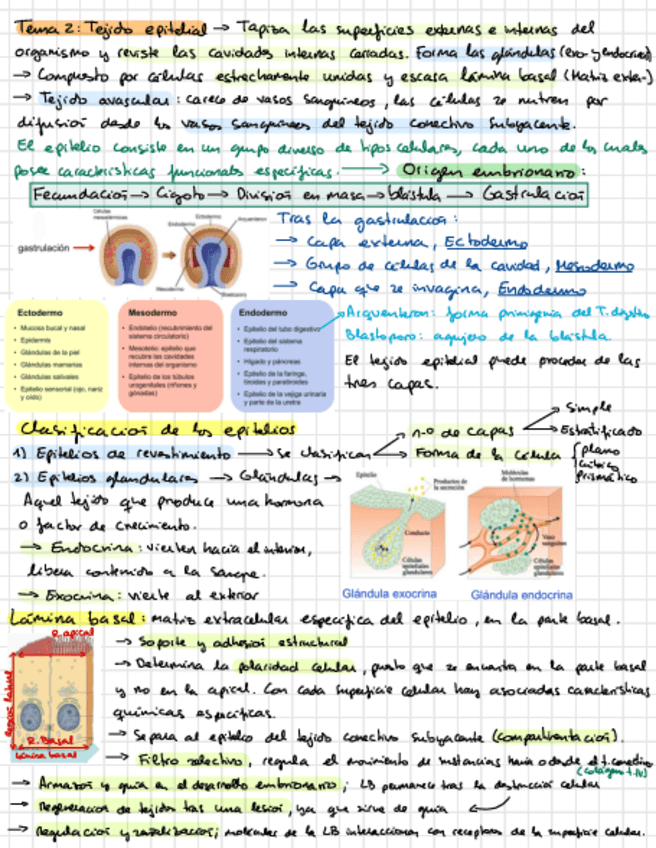 Tema 2: Tejido epitelial → Tapiza las superficies externas e internas del
organismo y reviste las cavidades internas cerradas. Forma las glándulas (exo- y endocrino)
→ Compuesto por células estrechamente unidas y escasa lámina basal (Matriz extra-)
→ Tejido avascular: carece de vasos sanguíneos, las células se nutren por
difusión desde los vasos sanguíneos del tejido conectivo subyacente.
El epitelio consiste en un grupo diverso de tipos celulares, cada uno de los cuales
posee características funcionales específicas. → Origen embrionario:
Fecundación → Cigoto → División en masa → blástula → Gastrulación
gastrulación →
Células mesodérmicas
Endodermo
Ectodermo
Arquenteron
Mesodermo
Blastoporo
Tras la gastrulación:
→ Capa externa, Ectodermo
→ Grupo de células de la cavidad, Mesodermo
→ Capa que se invagina, Endodermo
Ectodermo
• Mucosa bucal y nasal
• Epidermis
• Glándulas de la piel
• Glándulas mamarias
• Glándulas salivales
• Epitelio sensorial (ojo, nariz
y oído)
Mesodermo
• Endotelio (recubrimiento del
sistema circulatorio)
• Mesotelio: epitelio que
recubre las cavidades
internas del organismo
• Epitelio de los túbulos
urogenitales (riñones y
gónadas)
Endodermo
• Epitelio del tubo digestivo
• Epitelio del sistema
respiratorio
• Hígado y páncreas
• Epitelio de la faringe,
tiroides y paratiroides
• Epitelio de la vejiga urinaria
y parte de la uretra
Arquenteron: forma primigenia del T. digestivo
Blastoporo: agujero de la blástula.
El tejido epitelial puede proceder de las
tres capas.
Clasificación de los epitelios
1) Epitelios de revestimiento → se clasifican
n.o de capas
Simple
Estratificado
Forma de la célula
plano
cúbico
prismático
2) Epitelios glandulares → Glándulas →
Aquel tejido que produce una hormona
o factor de crecimiento.
→ Endocrina: vierten hacia el interior,
libera contenido a la sangre.
→ Exocrina: vierte al exterior
Epitelio
Productos de
la secreción
Conducto
Células
epiteliales
glandulares
Glándula exocrina
Moléculas
de hormonas
Vaso
sanguíneo
Células
epiteliales
glandulares
Glándula endocrina
Lámina basal: matriz extracelular específica del epitelio, en la parte basal.
R. apical
Región lateral
R. Basal
Lámina basal
→ Soporte y adhesión estructural
→ Determina la polaridad celular, puesto que se encuentra en la parte basal
y no en la apical. Con cada superficie celular hay asociadas características
químicas específicas.
→ Separa al epitelio del tejido conectivo subyacente (compartimentación).
→ Filtro selectivo, regula el movimiento de sustancias hacia o desde el t. conectivo
(colágeno t. IV)
→ Armazón y guía en el desarrollo embrionario; LB permanece tras la destrucción celular
→ Regeneración de tejidos tras una lesión, ya que sirve de guía
→ Regulación y señalización; moléculas de la LB interaccionan con receptores de la superficie celular.